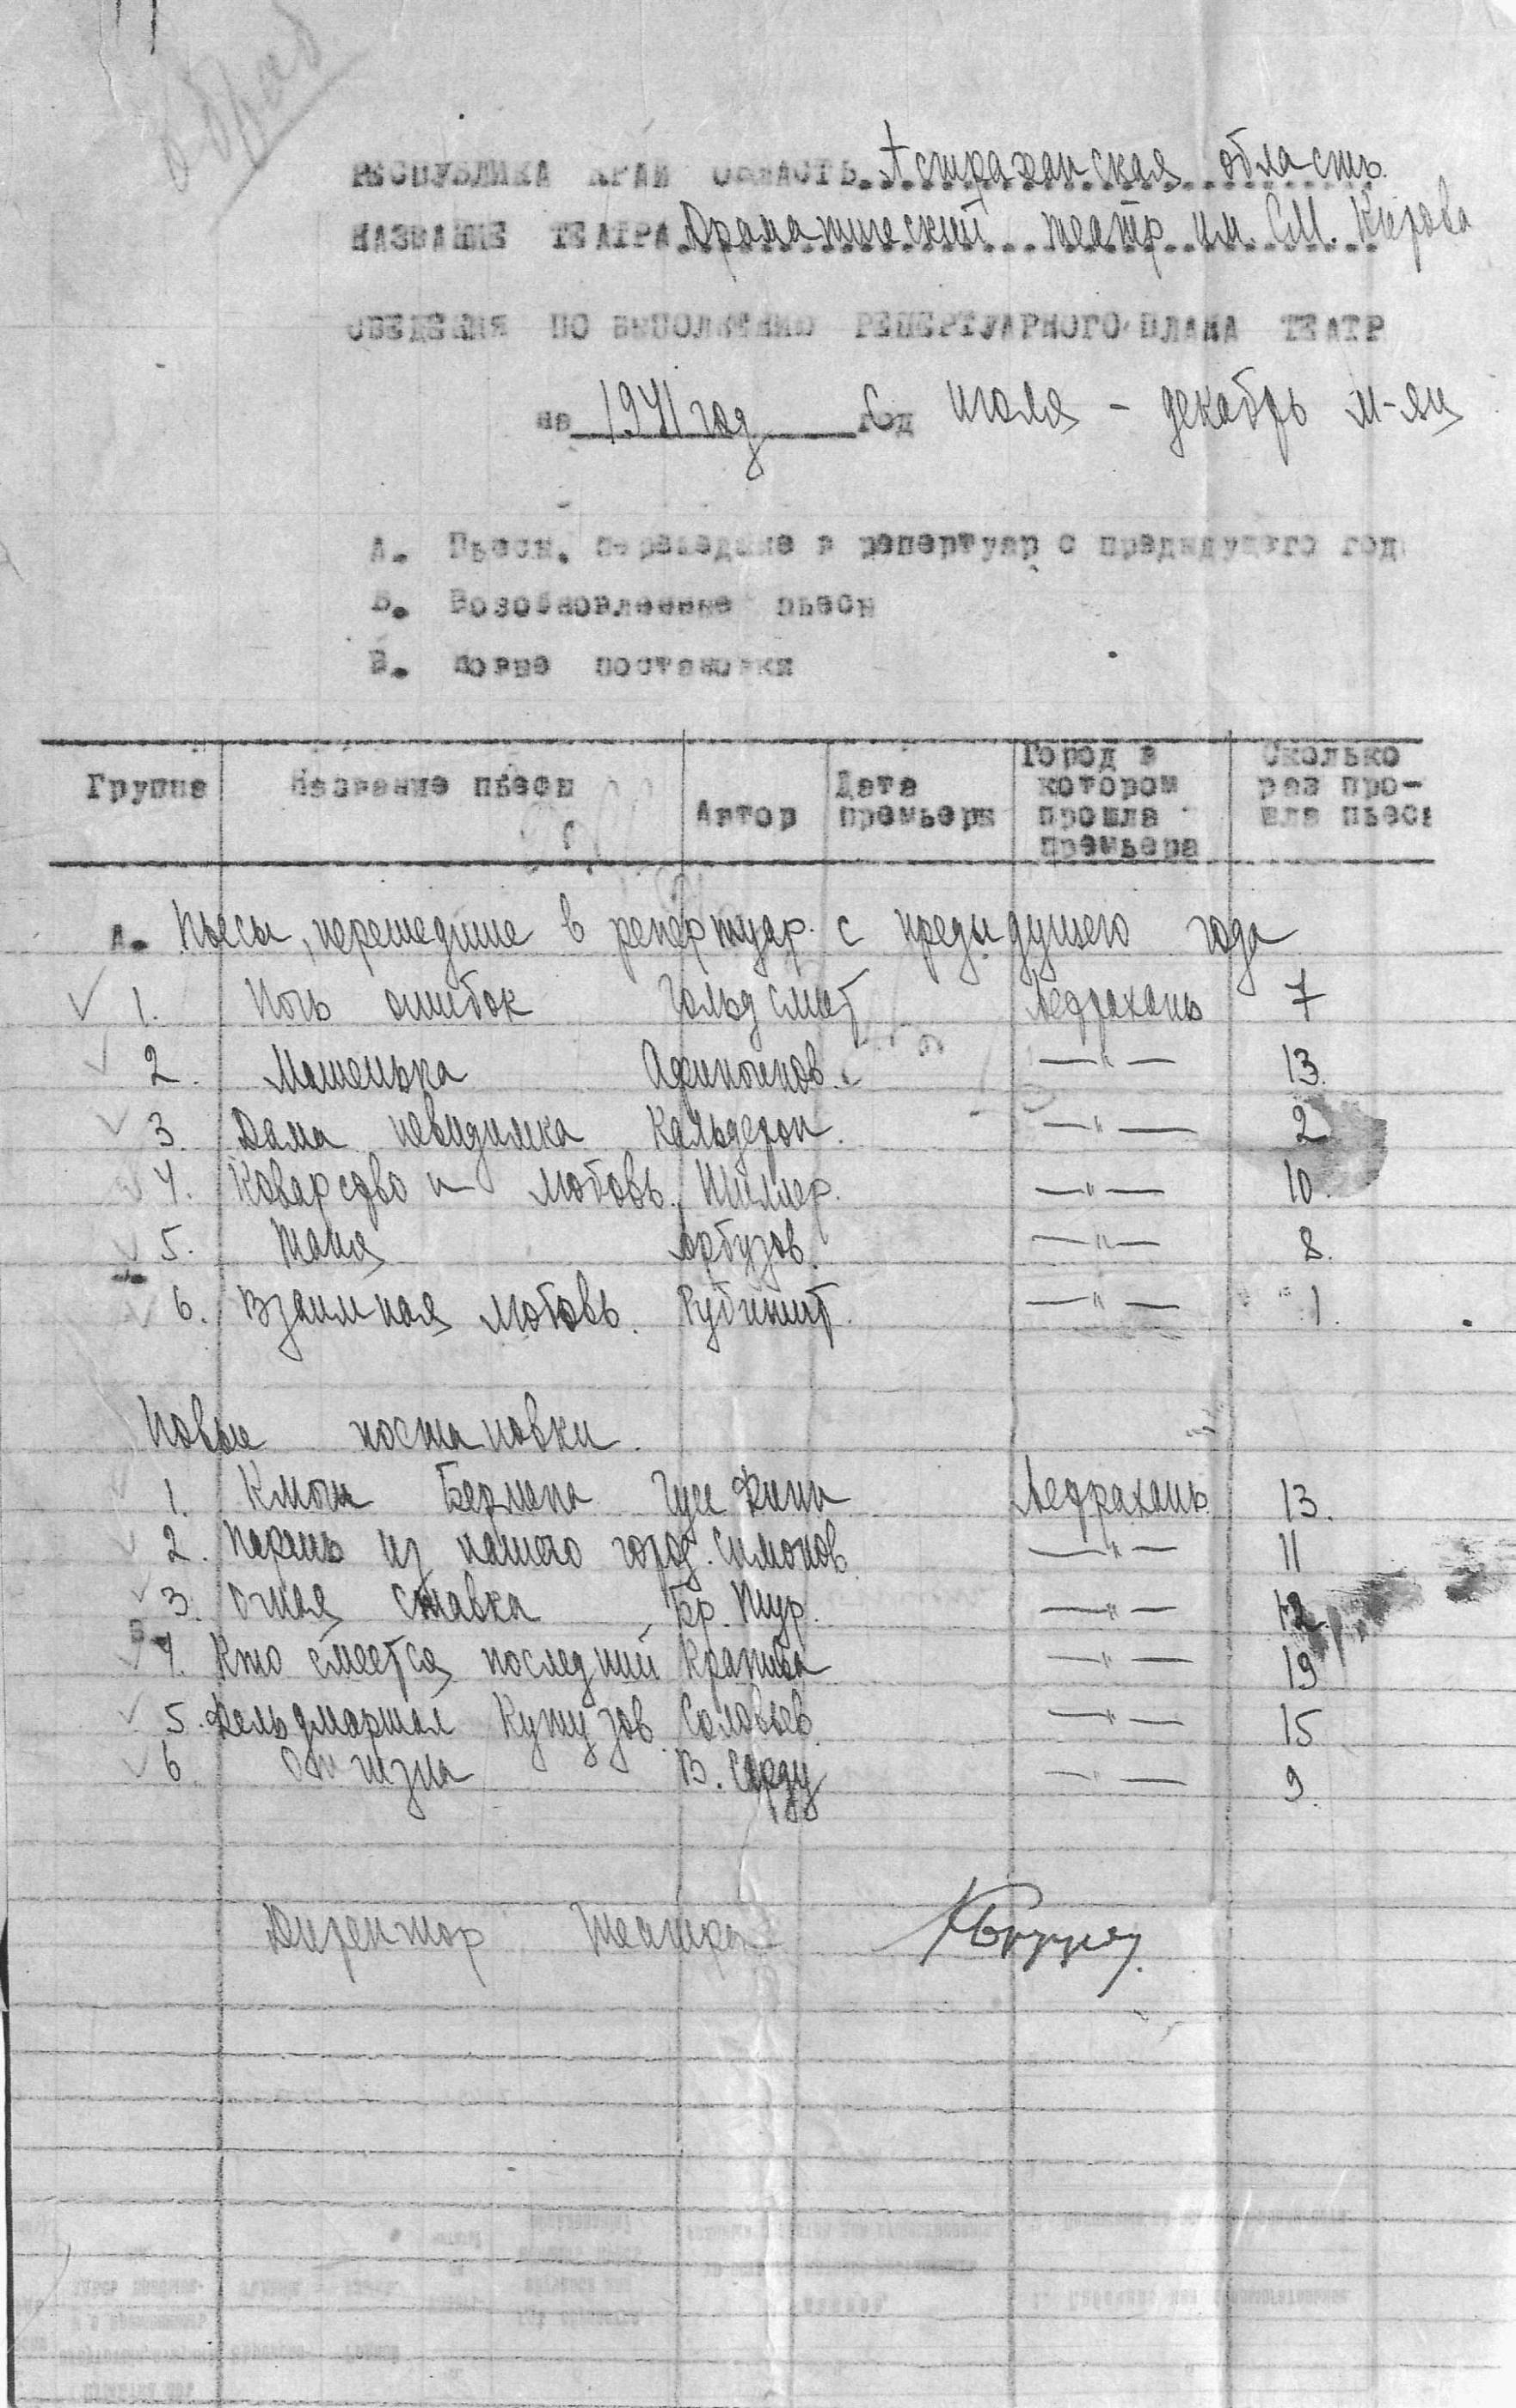 образ
РЕСПУБЛИКА КРАЙ ОБЛАСТЬ Астраханская область
НАЗВАНИЕ ТЕАТРА Драматический театр им. С.М. Кирова
СВЕДЕНИЯ ПО ВЫПОЛНЕНИЮ РЕПЕРТУАРНОГО ПЛАНА ТЕАТР
на 1941 год год С июля - декабрь м-яц
А. Пьесы, переведшие в репертуар с предыдущего год
Б. Возобновленные пьесы
В. Новые постановки
Группа Название пьесы Автор Дата премьеры Город в котором прошла премьера Сколько раз про- шла пьеса
А. Пьесы, перешедшие в репертуар с предыдущего года
1. Ночь ошибок Гольдсмит Астрахань 7
2. Машенька Афиногенов. —"— 13.
3. Дама невидимка Кальдерон. —"— 2
4. Коварство и любовь. Шиллер. —"— 10.
5. Таня Арбузов. —"— 8.
6. Взаимная любовь. Рубинит. —"— 1.
Новые постановки.
1. Ключи Берлина Гус Финн Астрахань. 13.
2. Парень из нашего город. Симонов. —"— 11
3. Очная ставка Бр. Тур. —"— 12.
В.
4. Кто смеется последний Крапива —"— 19
5. Фельдмаршал Кутузов Соловьев. —"— 15
6. Отчизна В. Сарду —"— 9.
Директор театра